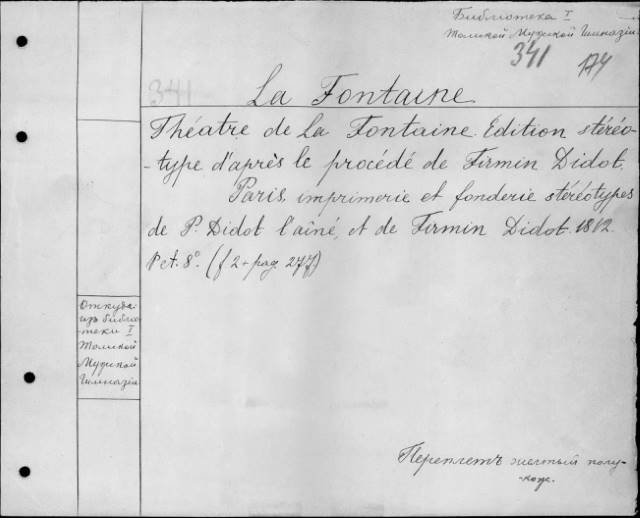 Библиотека I
Томской Мужской Гимназіи
341 174
341
La Fontaine
Théatre de La Fontaine. Edition stéréo-
-type d'après le procédé de Firmin Didot.
Paris, imprimerie et fonderie stéréotypes
de P. Didot l'aîné, et de Firmin Didot. 1812.
Pet. 8º. (f 2 + pag. 277)
Откуда:
изъ библіо-
-теки I
Томской
Мужской
Гимназіи
Переплетъ желтый полу-
-кож.